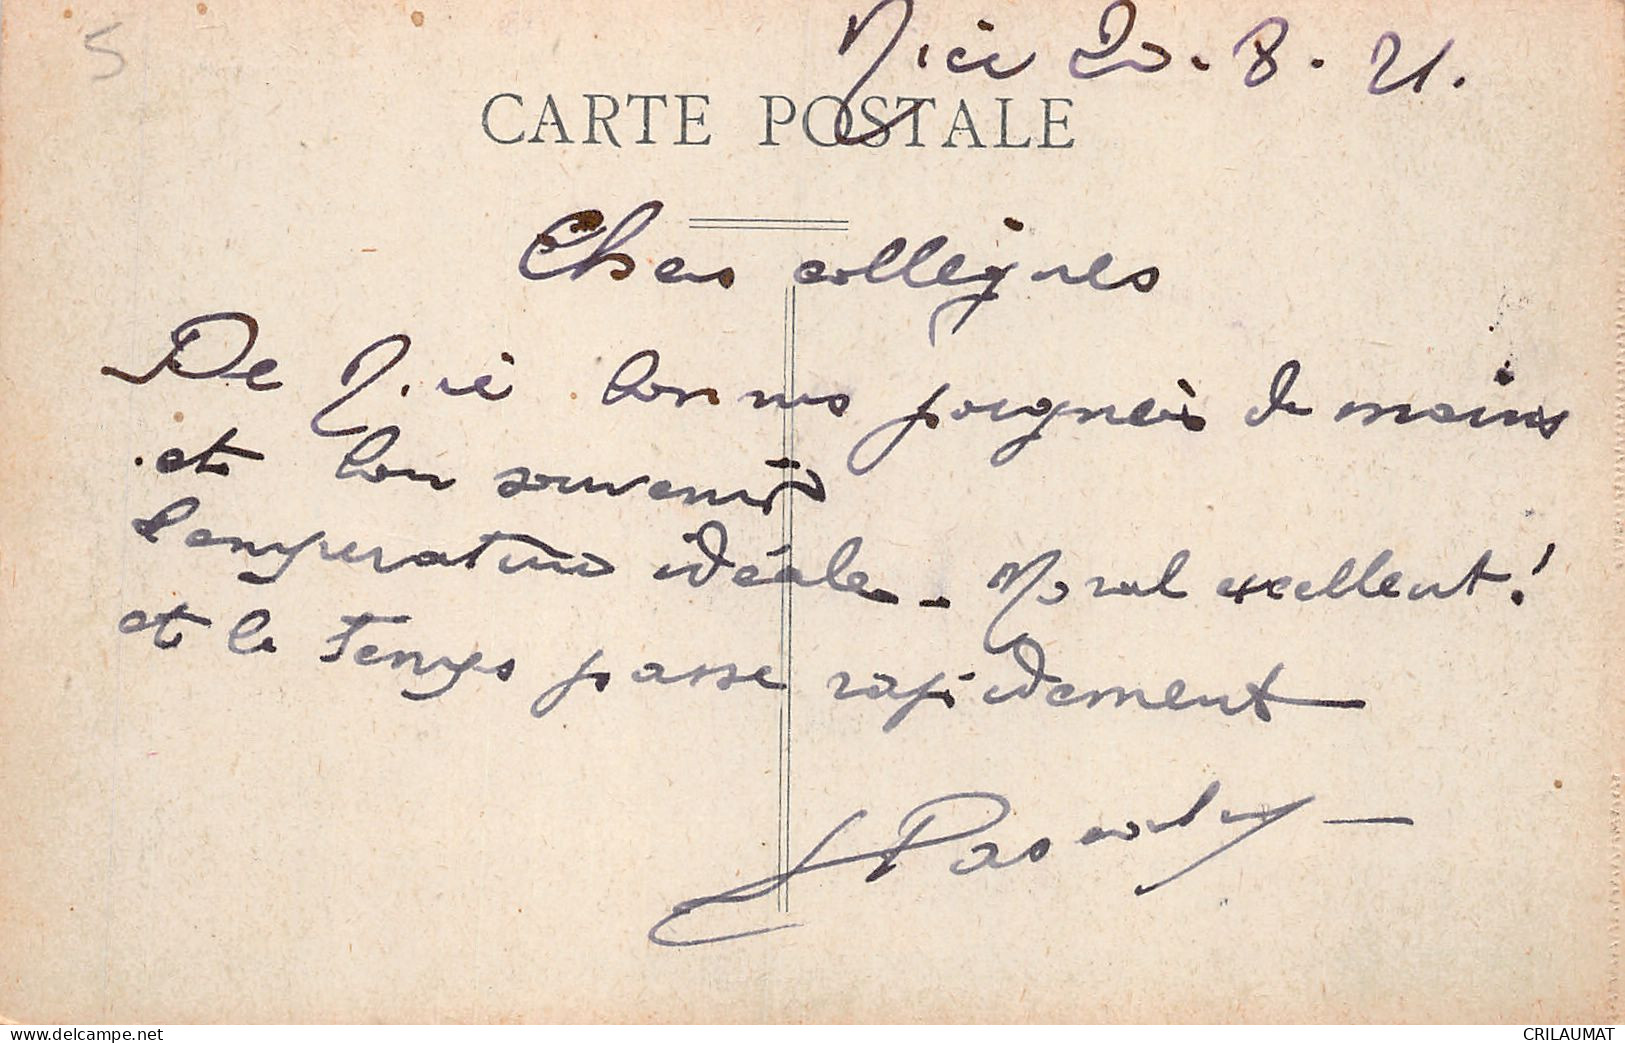 5
Nice 20.8.21.
CARTE POSTALE
Chers collègues
De Nice bonnes poignées de mains
et bon souvenir
Température idéale - Moral excellent!
et le temps passe rapidement
delcampe.net
CRILAUMAT